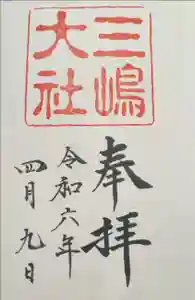 三嶋
大社
奉拝
令和六年
四月九日